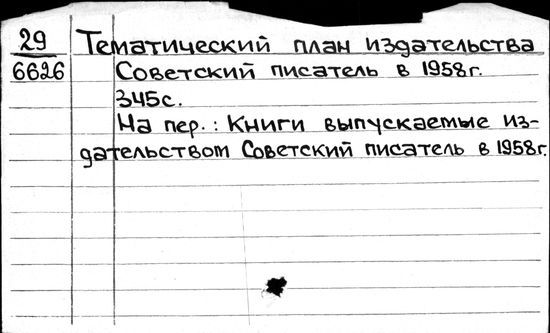 29 Тематический план издательства
6626 Советский писатель в 1958г.
345с.
На пер.: Книги выпускаемые из-
дательством Советский писатель в 1958г.